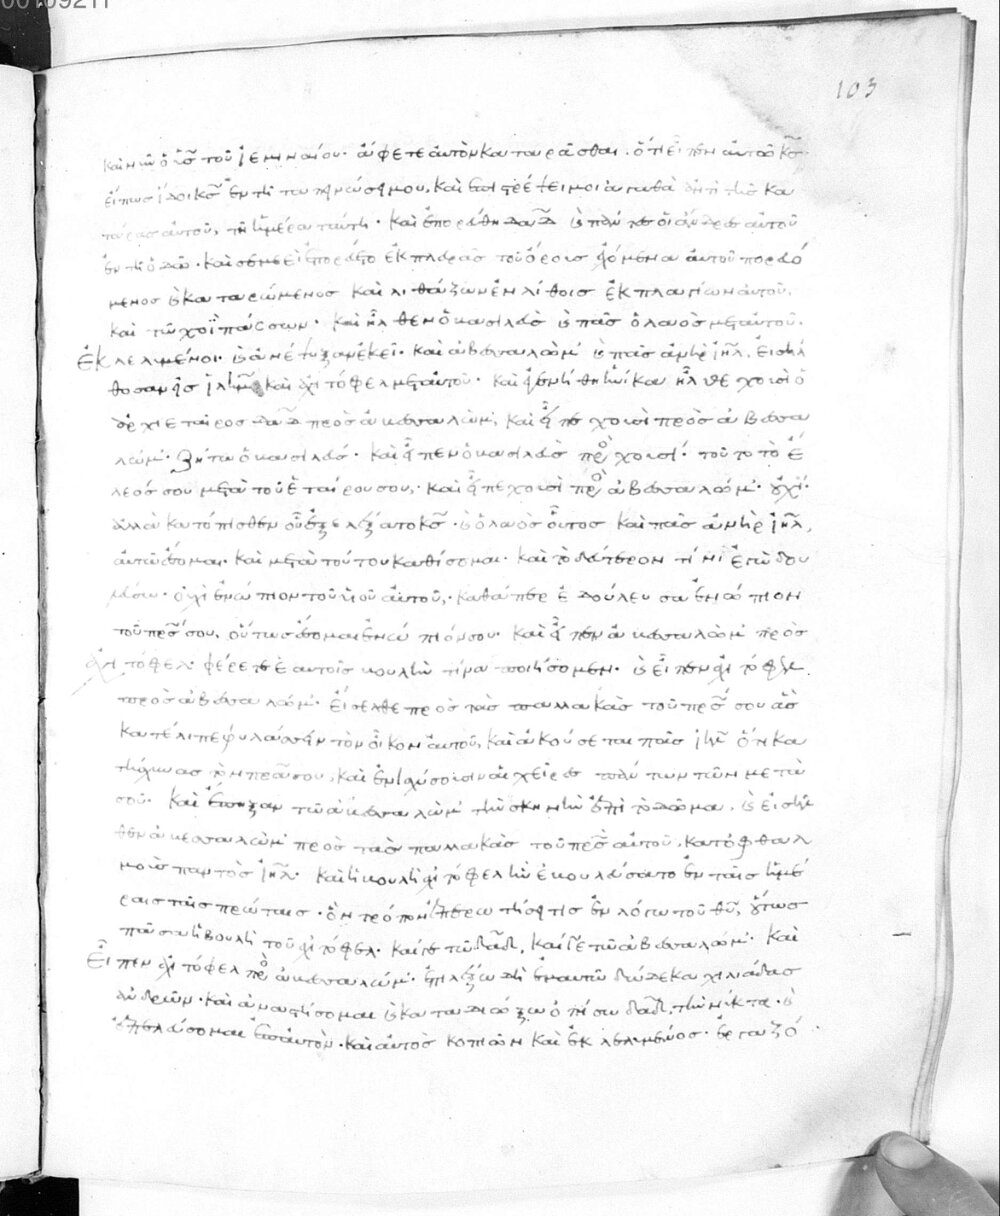 00109211
103
καὶ νῦν ὁ υἱὸς τοῦ ἰεμιναίου· ἄφετε αὐτὸν καταρᾶσθαι· ὅτι εἶπεν αὐτῶ κς·
εἴπως ἴδοι κς ἐν τῆ ταπεινώσει μου, καὶ ἐπιστρέψει μοι ἀγαθὰ ἀντὶ τῆς κα
τάρας αὐτοῦ, τῆ ἡμέρα ταύτη· καὶ ἐπορεύθη δαδ καὶ πάντες οἱ ἄνδρες αὐτοῦ
ἐν τῆ ὁδῶ· καὶ σεμεεὶ ἐπορεύετο ἐκ πλευρᾶς τοῦ ὄρους ἐχόμενα αὐτοῦ πορευό
μενος καὶ καταρώμενος καὶ λιθάζων ἐν λίθοις ἐκ πλαγίων αὐτοῦ,
καὶ τῶ χοῒ πάσσων· καὶ ἦλθεν ὁ βασιλεὺς καὶ πᾶς ὁ λαὸς μετ αὐτοῦ.
ἐκλελυμένοι· καὶ ἀνέψυξαν ἐκεῖ· καὶ ἀβεσσαλὼμ καὶ πᾶς ἀνὴρ ιηλ, εἰσῆλ
θοσαν εἰς ιλημ καὶ ἀχιτόφελ μετ αὐτοῦ· καὶ ἐγενήθη ἡνίκα ἦλθε χουσὶ ὁ
ἀρχιέταιρος δαδ πρὸς ἀβεσσαλώμ, καὶ εἶπε χουσὶ πρὸς ἀβεσσα
λώμ· ζήτω ὁ βασιλεύς· καὶ εἶπεν ὁ βασιλεὺς πρὸς χουσί· τοῦτο τὸ ἔ
λεός σου μετὰ τοῦ ἑταίρου σου, καὶ εἶπε χουσὶ πρὸς ἀβεσσαλώμ· οὐχί·
ἀλλὰ κατόπισθεν οὗ ἐξελέξατο κς· καὶ ὁ λαὸς οὗτος καὶ πᾶς ἀνὴρ ιηλ,
αὐτῶ ἔσομαι· καὶ μετὰ τούτου καθίσομαι· καὶ τὸ δεύτερον τίνι ἐγὼ δου
λεύσω· οὐχὶ ἐνώπιον τοῦ υἱοῦ αὐτοῦ, καθάπερ ἐδούλευσα ἐνώπιον
τοῦ πρς σου, οὕτως ἔσομαι ἐνώπιόν σου· καὶ εἶπεν ἀβεσσαλὼμ πρὸς
ἀχιτόφελ· φέρετε ἑαυτοῖς βουλὴν τί ποιήσομεν· καὶ εἶπεν ἀχιτόφελ
πρὸς ἀβεσσαλώμ· εἴσελθε πρὸς τὰς παλλακὰς τοῦ πρς σου ἃς
κατέλιπε φυλάσσειν τὸν οἶκον αὐτοῦ, καὶ ἀκούσεται πᾶς ιηλ ὅτι κα
τήσχυνας τὸν πρα σου, καὶ ἐνισχύσουσιν αἱ χεῖρες πάντων τῶν μετὰ
σοῦ· καὶ ἔπηξαν τῶ ἀβεσσαλὼμ τὴν σκηνὴν ἐπὶ τὸ δῶμα, καὶ εἰσῆλ
θεν ἀβεσσαλὼμ πρὸς τὰς παλλακὰς τοῦ πρς αὐτοῦ, κατ ὀφθαλ
μοὺς παντὸς ιηλ· καὶ ἡ βουλὴ ἀχιτόφελ ἣν ἐβουλεύσατο ἐν ταῖς ἡμέ
ραις ταῖς πρώταις· ὃν τρόπον ἐπερωτήσῃ τις ἐν λόγω τοῦ θυ, οὕτως
πᾶσα ἡ βουλὴ τοῦ ἀχιτόφελ· καί γε τῶ δαδ, καί γε τῶ ἀβεσσαλώμ· καὶ
εἶπεν ἀχιτόφελ πρὸς ἀβεσσαλώμ· ἐπιλέξω δὴ ἐμαυτῶ δώδεκα χιλιάδας
ἀνδρῶν· καὶ ἀναστήσομαι καὶ καταδιώξω ὀπίσω δαδ, τὴν νύκτα· καὶ
ἐπελεύσομαι ἐπ αὐτὸν· καὶ αὐτὸς κοπιῶν καὶ ἐκλελυμένος·